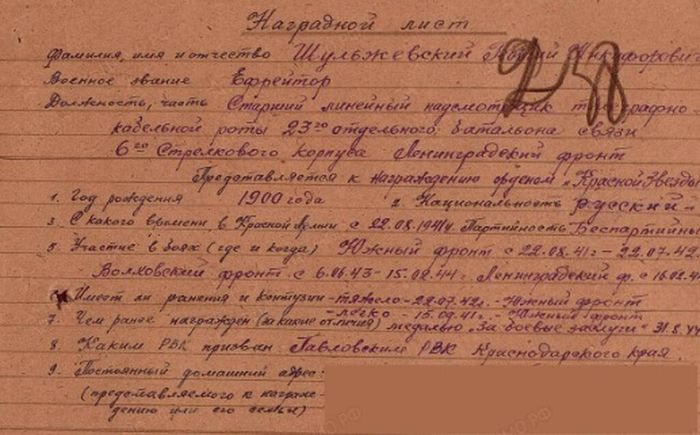 Наградной лист
Фамилия, имя и отчество Шульжевский Никифорович
258
Военное звание Ефрейтор
Должность, часть Старший линейный надсмотрщик телеграфно
кабельной роты 23го отдельного батальона связи
6го Стрелкового корпуса Ленинградский фронт
Представляется к награждению орденом „Красной Звезды
1. Год рождения 1900 года 2. Национальность русский -
3. С какого времени в Красной Армии с 22.08.1941г. Партийность Беспартийны
5. Участие в боях (где и когда) Южный фронт с 22.08.41г - 22.07.42.
Волховский фронт с 6.06.43 - 15.02.44г. Ленинградский ф. с 16.02.4
Имеет ли ранения и контузии - тяжело - 22.07.42г. - Южный фронт
- легко - 15.09.41г. - Южный фронт
7. Чем ранее награжден (за какие отличия) медалью „За боевые заслуги" 31.8.44
8. Каким РВК призван Павловским РВК Краснодарского края
9. Постоянный домашний адрес:
(представляемого к награж-
дению или его семьи)